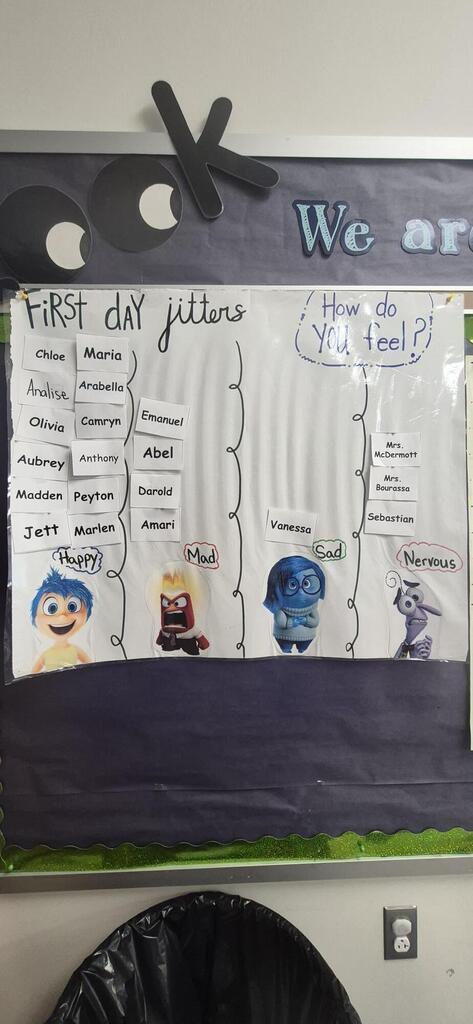 We are
FIRST dAY jitters
How do
YOU feel?
Chloe
Maria
Analise
Arabella
Olivia
Camryn
Aubrey
Anthony
Madden
Peyton
Jett
Marlen
Happy
Emanuel
Abel
Darold
Amari
Mad
Vanessa
Sad
Mrs.
McDermott
Mrs.
Bourassa
Sebastian
Nervous